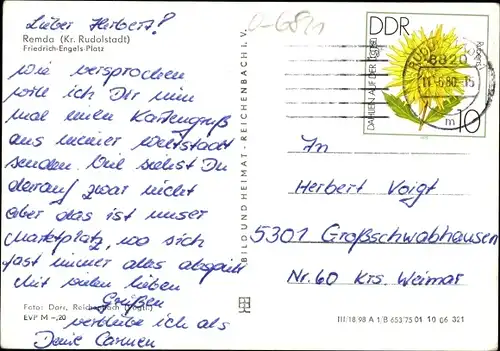 Lieber Herbert!
Remda (Kr. Rudolstadt)
Friedrich-Engels-Platz
Wie versprochen
will ich Dir nun
mal einen Kartengruß
aus meiner Weltstadt
senden. Viel siehst Du
darauf zwar nicht
aber das ist unser
Marktplatz, wo sich
fast immer alles abspielt
Mit vielen lieben
Grüßen
verbleibe ich als
Deine Carmen
Foto: Darr, Reichenbach (Vogtl.)
EVP M -,20
BILD UND HEIMAT · REICHENBACH I. V.
0-6821
DDR
DAHLIEN AUF DER
m 10
6820
11.-6.80.-15
In
Herbert Voigt
5301 Großschwabhausen
Nr. 60 Krs. Weimar
III/18/98 A 1/B 653/75 01 10 06 321